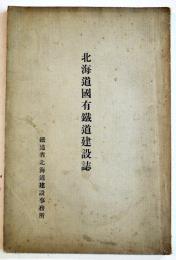 北海道國有鐵道建設誌
鐵道省北海道建設事務所